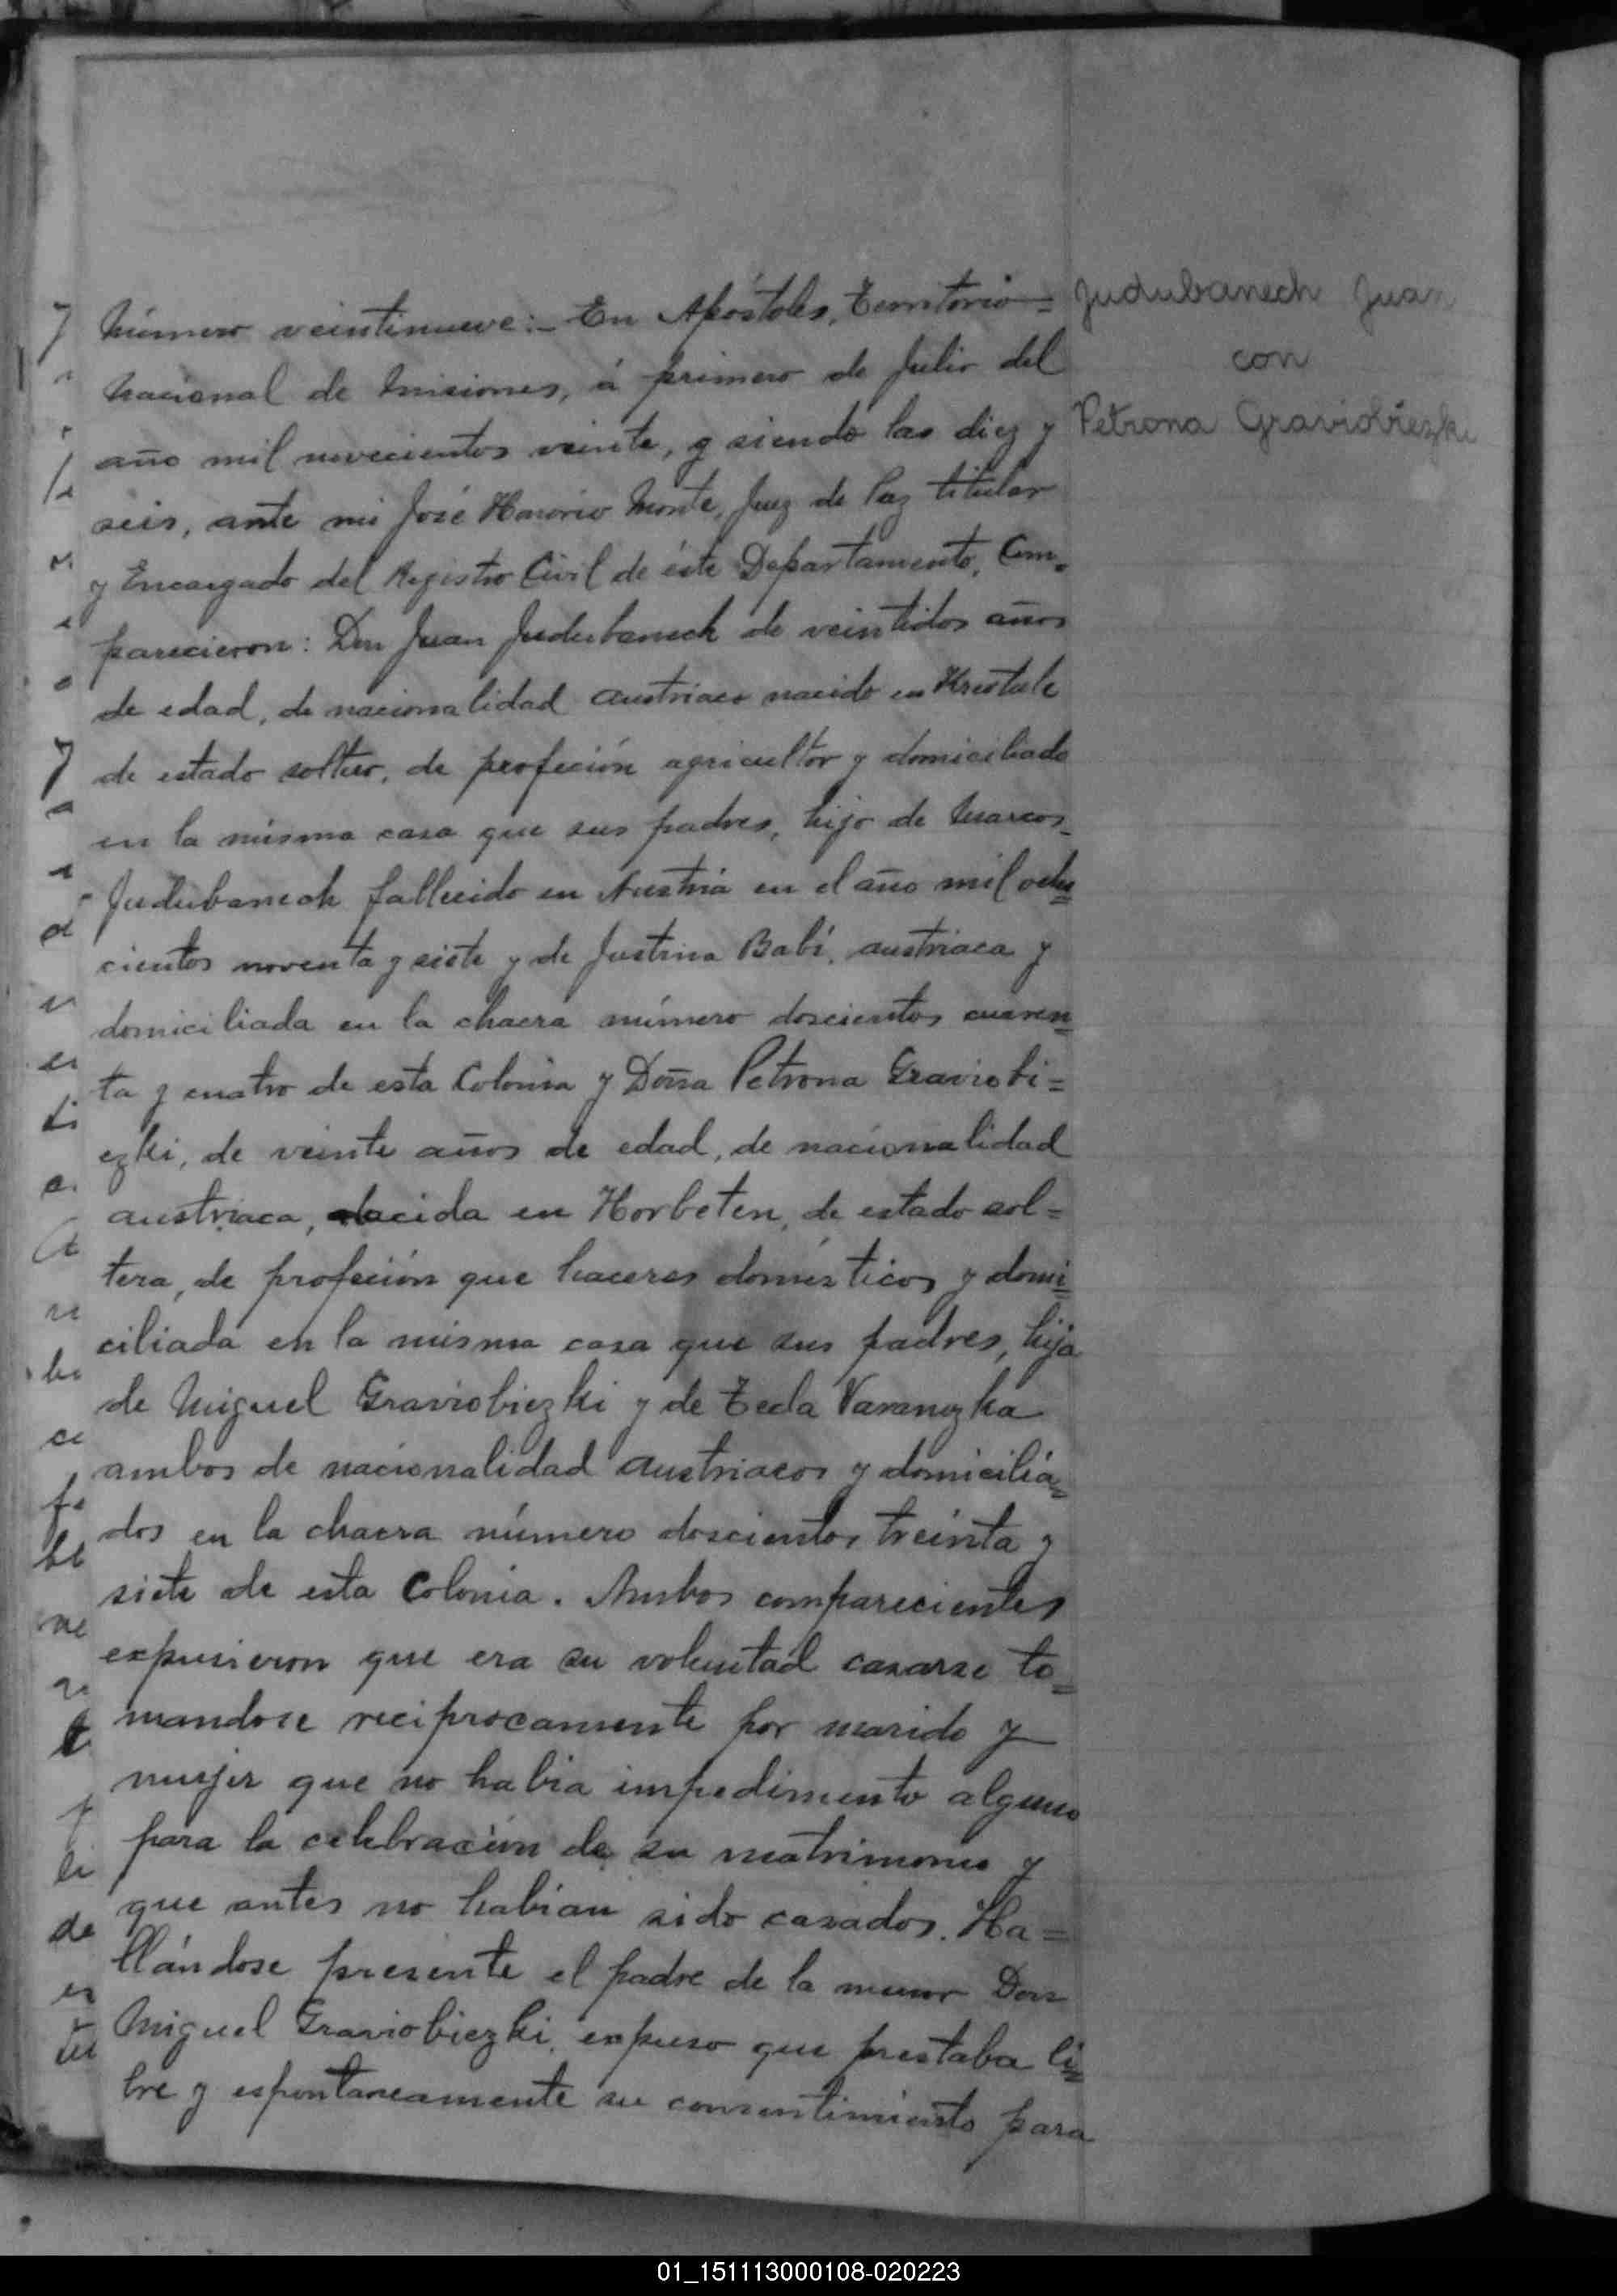 Judubanech Juan
con
Petrona Graviobiezki
Número veintinueve:- En Apóstoles, Territorio =
Nacional de Misiones, á primero de Julio del
año mil novecientos veinte, y siendo las diez y
seis, ante mi José Honorio Monte, Juez de Paz titular
y Encargado del Registro Civil de éste Departamento, Com=
parecieron: Don Juan Judubanech de veintidos años
de edad, de nacionalidad austriaco nacido en
de estado soltero, de profeción agricultor y domiciliado
en la misma casa que sus padres, hijo de Marcos
Judubanech fallecido en Austria en el año mil ocho=
cientos noventa y siete y de Justina Babí, austriaca y
domiciliada en la chacra número doscientos cuaren=
ta y cuatro de esta Colonia y Doña Petrona Graviobi=
ezki, de veinte años de edad, de nacionalidad
austriaca, nacida en Horbeten, de estado sol=
tera, de profeción que haceres domésticos y domi=
ciliada en la misma casa que sus padres, hija
de Miguel Graviobiezki y de Tecla Varanezka
ambos de nacionalidad austriacos y domicilia=
dos en la chacra número doscientos treinta y
siete de esta Colonia. Ambos comparecientes
expusieron que era su voluntad casarse to=
mandose reciprocamente por marido y
mujer que no habia impedimento alguno
para la celebración de su matrimonio y
que antes no habían sido casados. Ha=
llándose presente el padre de la menor Don
Miguel Graviobiezki, expuso que prestaba li=
bre y espontaneamente su consentimiento para
01_151113000108-020223